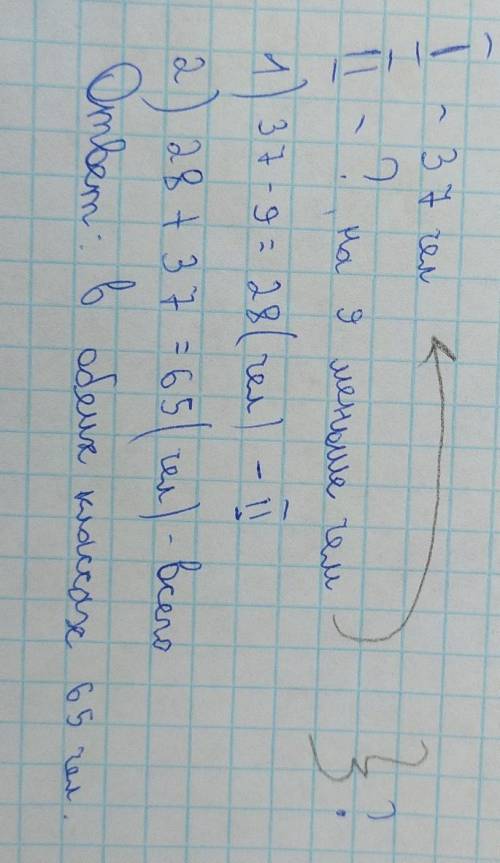 I - 37 чел
II - ?, на 9 меньше чем
}?
1) 37 - 9 = 28 (чел) - II
2) 28 + 37 = 65 (чел) - всего
Ответ: в обеих классах 65 чел.